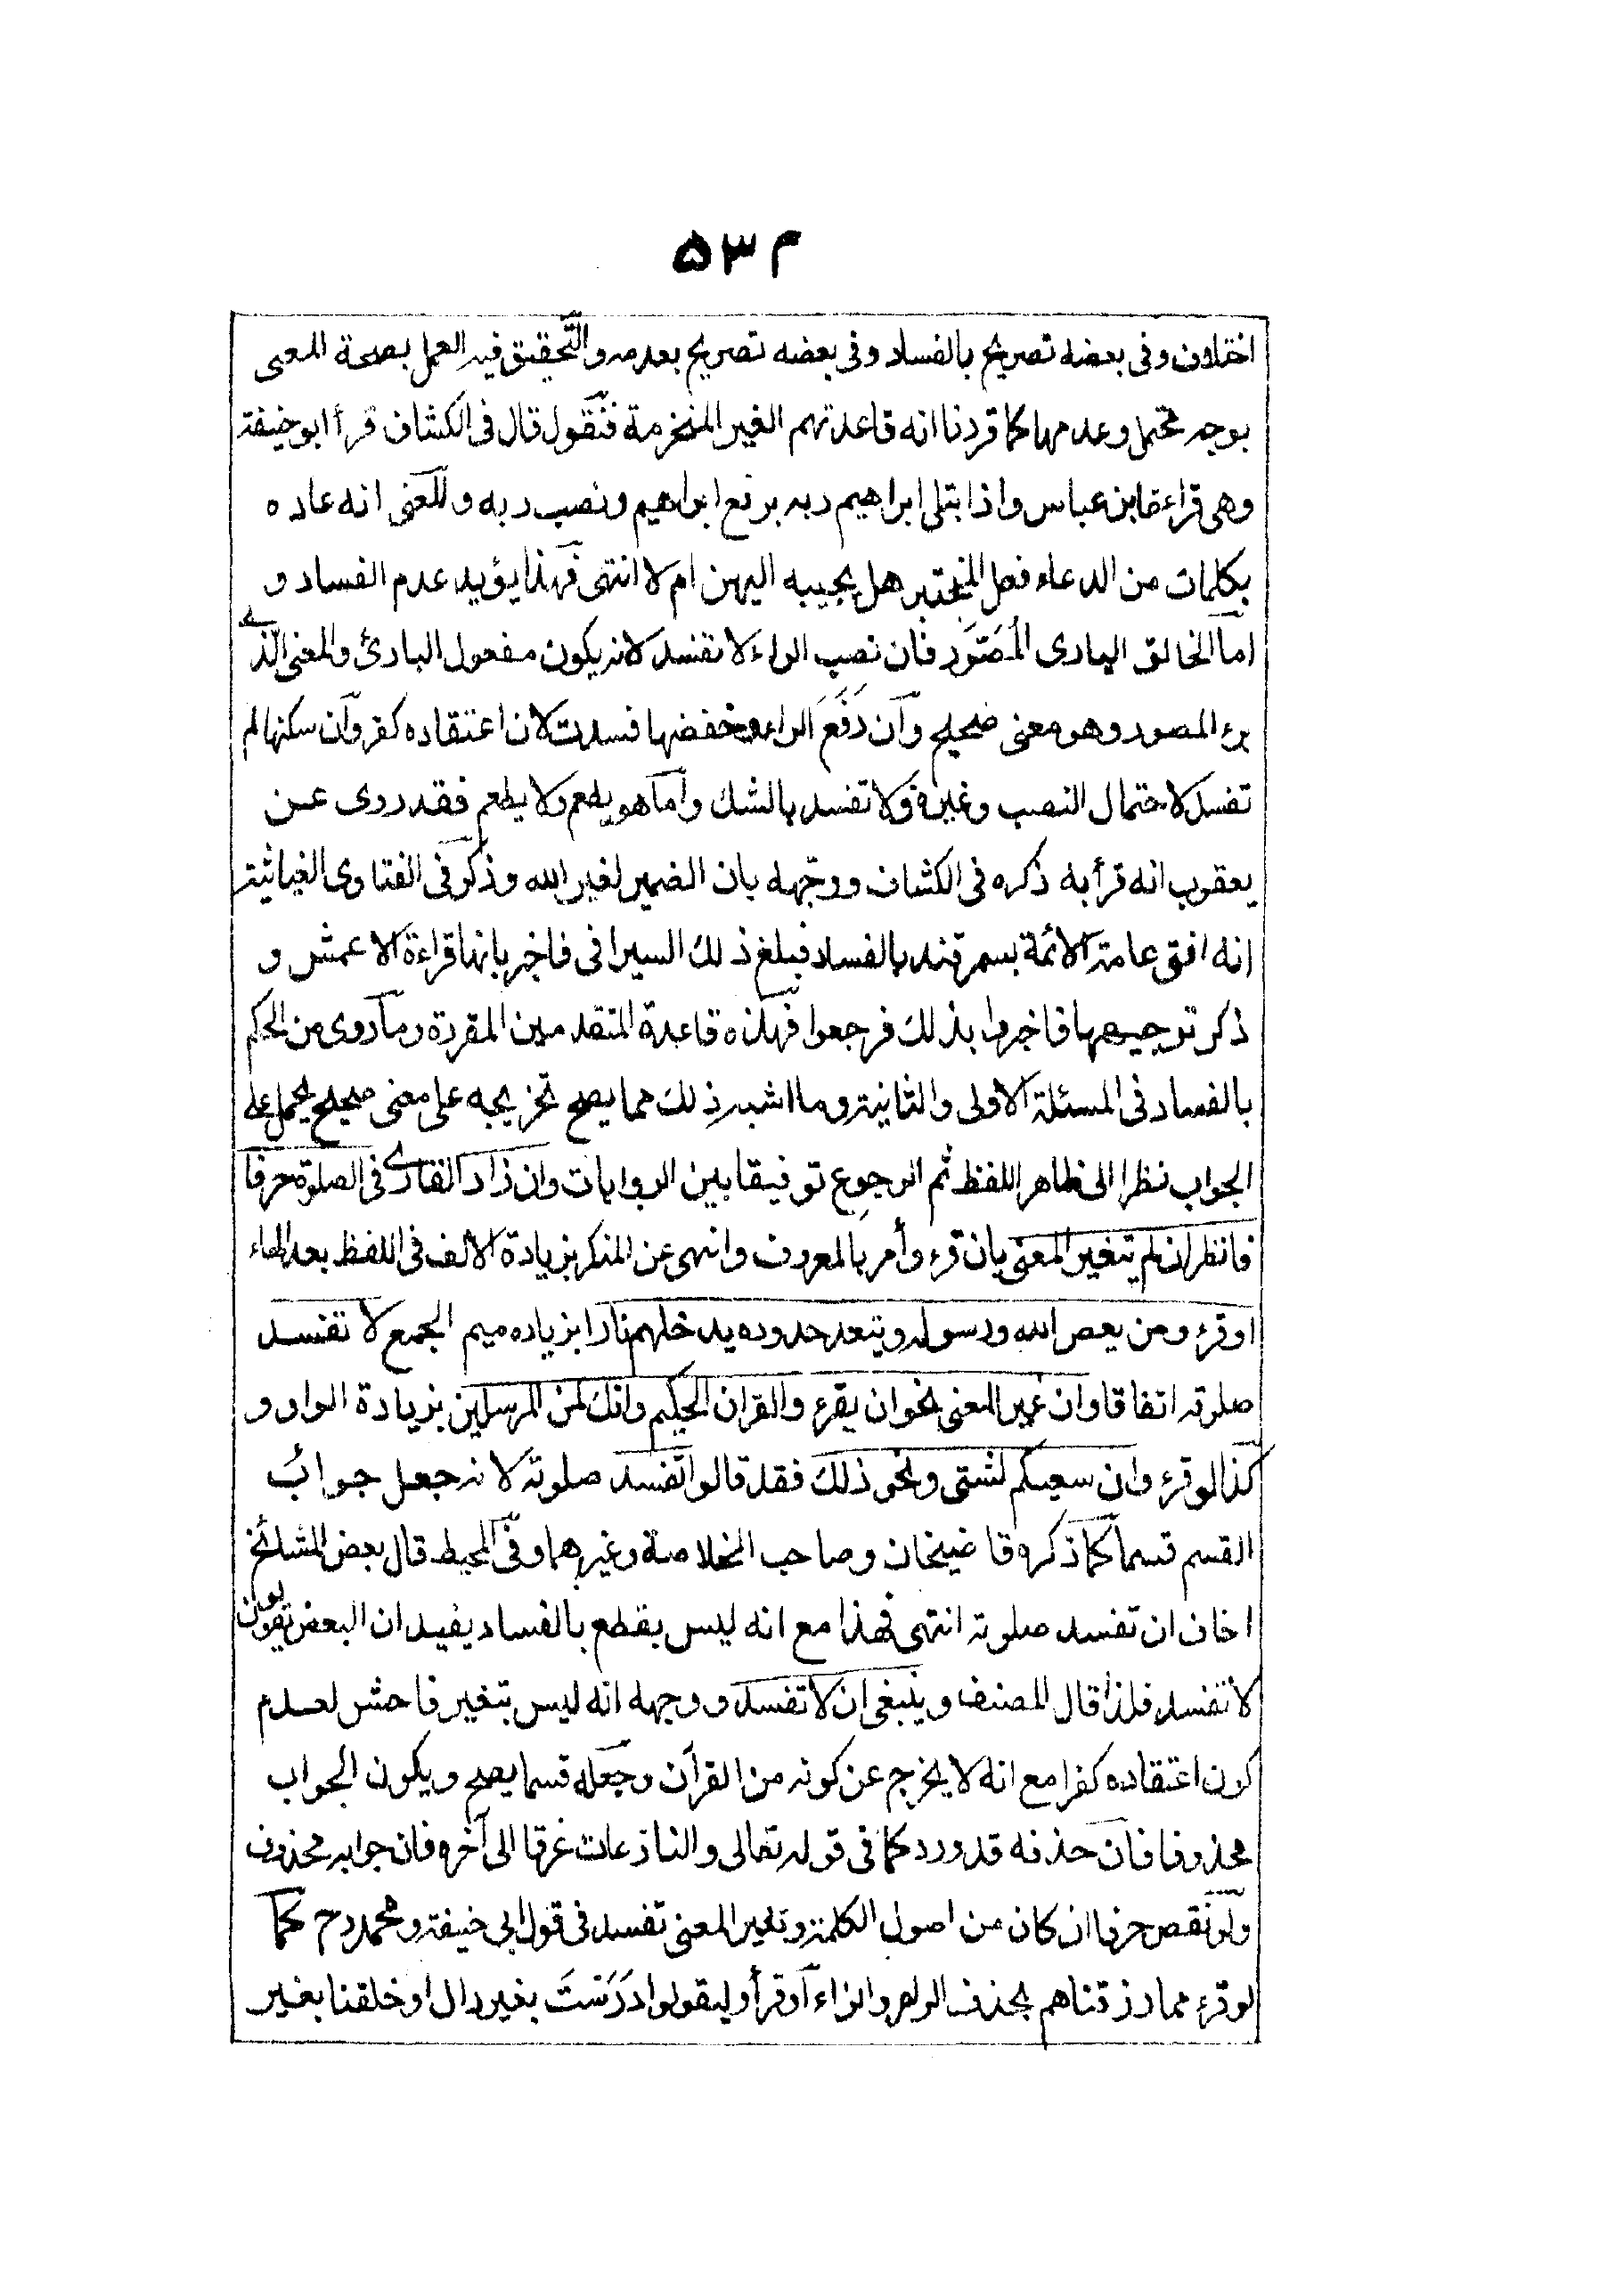 ۵۳م
اختلاف وفى بعضه تصريح بالفساد وفى بعضه تصريح بعدمه والتحقيق فيه العمل بصحة المعنى
بوجه محتمل وعدمها كما قررنا انه قاعدتهم الغير المنخرمة فنقول قال فى الكشاف قرأ ابو حنيفة
وهى قراءة ابن عباس واذا بتلى ابراهيم ربه برفع ابراهيم ونصب ربه والمعنى انه عاده
بكلمات من الدعاء فعل المختبر هل يجيبه اليهن ام لا انتهى فهذا يؤيد عدم الفساد و
اما الخالق البارى المُصَوَّر فان نصب الراء لا تفسد لانه يكون مفعول البارئ والمعنى الذے
برء المصور وهو معنى صحيح وان رَفَعَ الراء وخفضها فسدت لان اعتقاده كفر وان سكنها لم
تفسد لاحتمال النصب وغيره ولا تفسد بالشك واما هو يطعم ولا يطعم فقد روى عن
يعقوب انه قرأ به ذكره فى الكشاف ووجّهه بان الضمير لغير الله وذكر فى الفتاوى الغياثية
انه افتى عامة الائمة بسمرقند بالفساد فبلغ ذلك السيرافى فاخبر بانها قراءة الاعمش و
ذكر توجيهها فاخبروا بذلك فرجعوا فهذه قاعدة المتقدمين المقررة وما روى من الحكم
بالفساد فى المسئلة الاولى والثانية وما اشبه ذلك مما يصح تخريجه على معنى صحيح يحمل على
الجواب نظرا الى ظاهر اللفظ ثم الرجوع توفيقا بين الروايات وان زاد القارے فى الصلوة حرفا
فانظر ان لم يتغير المعنى بان قرء وأمر بالمعروف وانهى عن المنكر بزيادة الالف فى اللفظ بعد الهاء
او قرء ومن يعص الله ورسوله ويتعد حدوده يدخلهم نارا بزياده ميم الجمع لا تفسد
صلوته اتفاقا وان غير المعنى نحو ان يقرء والقران الحكيم وانك لمن المرسلين بزيادة الواو و
كذا لو قرء وان سعيكم لشتى ونحو ذلك فقد قالوا تفسد صلوته لانه جعل جوابُ
القسم قسما كما ذكره قاضيخان وصاحب الخلاصة وغيرهما وفى المحيط قال بعض المشائخ
اخاف ان تفسد صلوته انتهى فهذا مع انه ليس بقطع بالفساد يفيد ان البعض يقولون
لا تفسد فلذا قال المصنف وينبغى ان لا تفسد ووجهه انه ليس بتغير فاحش لعدم
كون اعتقاده كفرا مع انه لا يخرج عن كونه من القرآن وجعله قسما يصح ويكون الجواب
محذوفا فان حذفه قد ورد كما فى قوله تعالى والنازعات غرقا الى آخره فان جوابه محذوف
ولو نقص حرفا ان كان من اصول الكلمة وتغير المعنى تفسد فى قول ابى حنيفة ومحمد رح كما
لو قرء مما رزقناهم بحذف الراء والزاء أو قرأ وليقولوا دَرَسْتَ بغير دال او خلقنا بغير